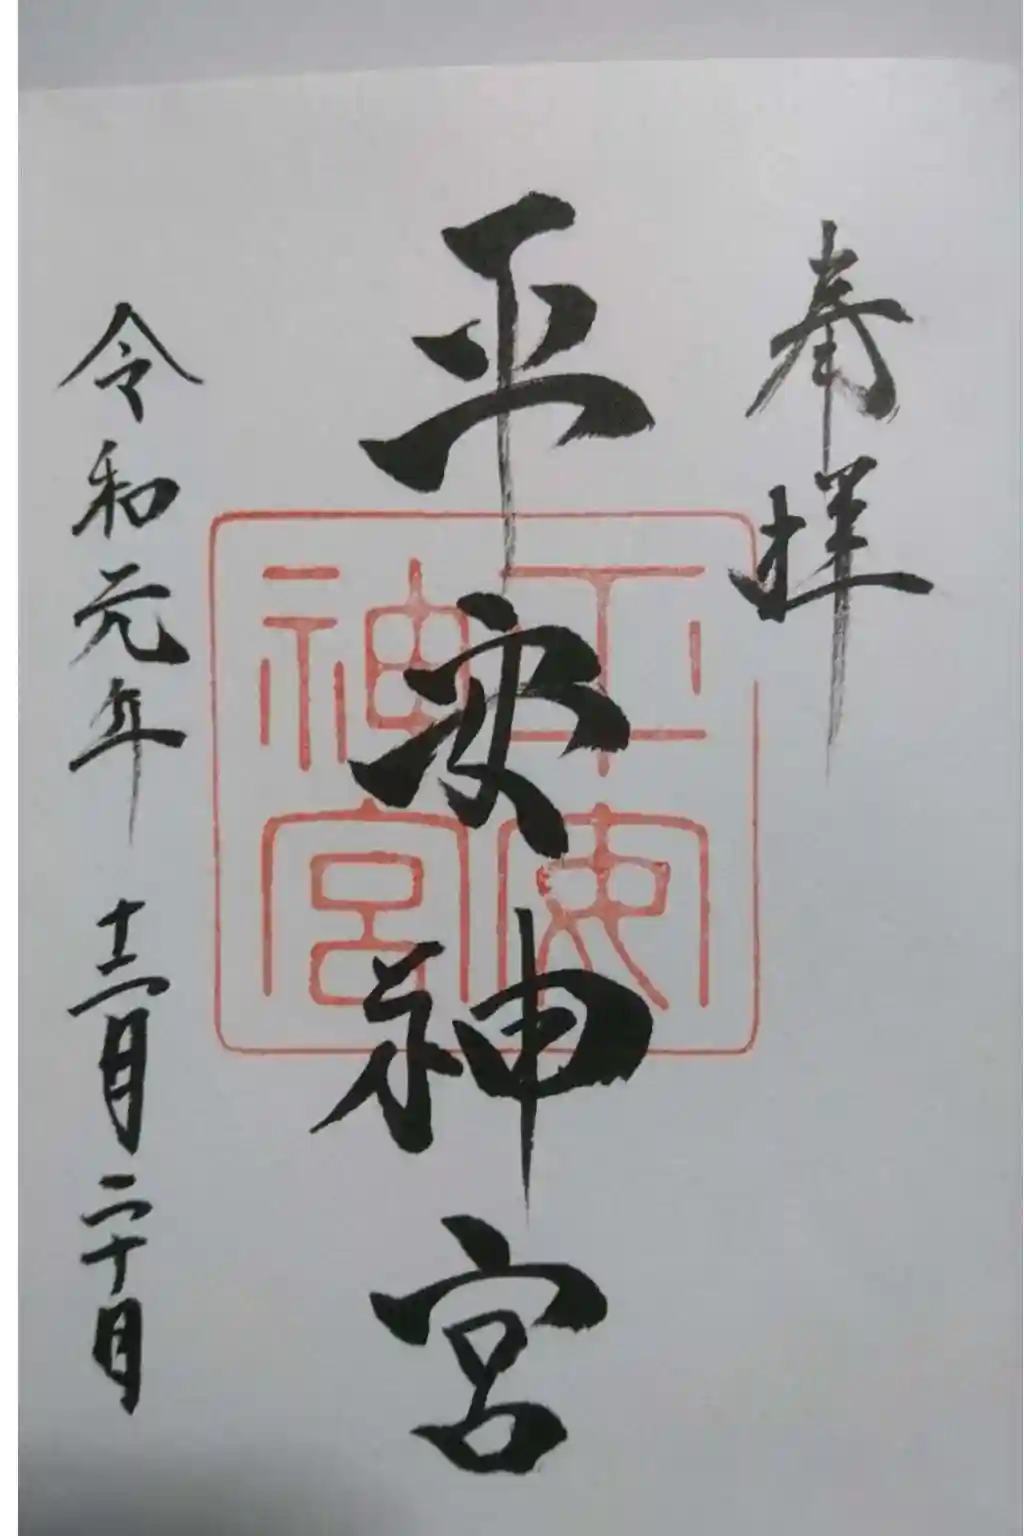 奉拝
平安神宮
平安
神宮
令和元年十二月二十日